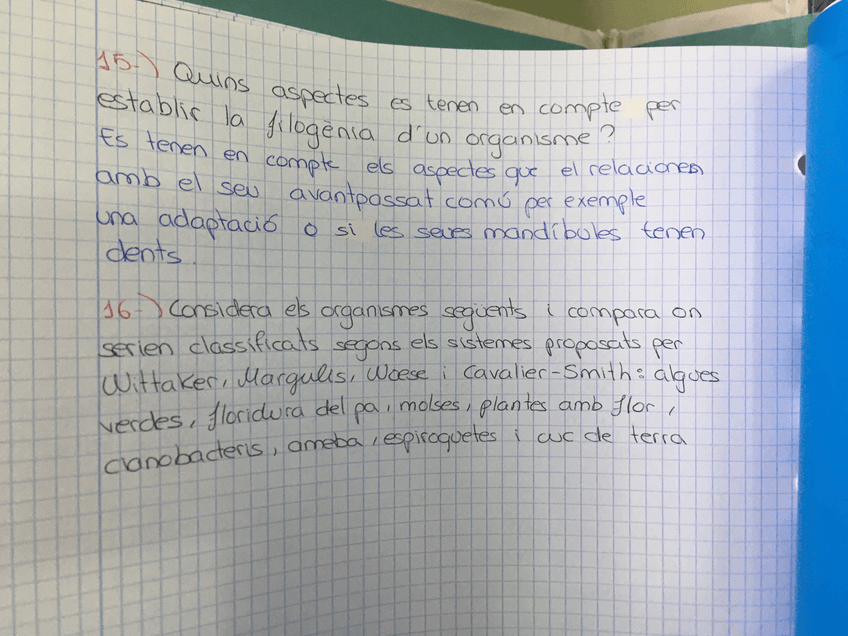 15-) Quins aspectes es tenen en compte per
establir la filogènia d'un organisme?
Es tenen en compte els aspectes que el relacionen
amb el seu avantpassat comú per exemple
una adaptació o si les seves mandíbules tenen
dents.
16-) Considera els organismes següents i compara on
serien classificats segons els sistemes proposats per
Wittaker, Margulis, Woese i Cavalier-Smith: algues
verdes, floridura del pa, molses, plantes amb flor,
cianobacteris, ameba, espiroquetes i cuc de terra